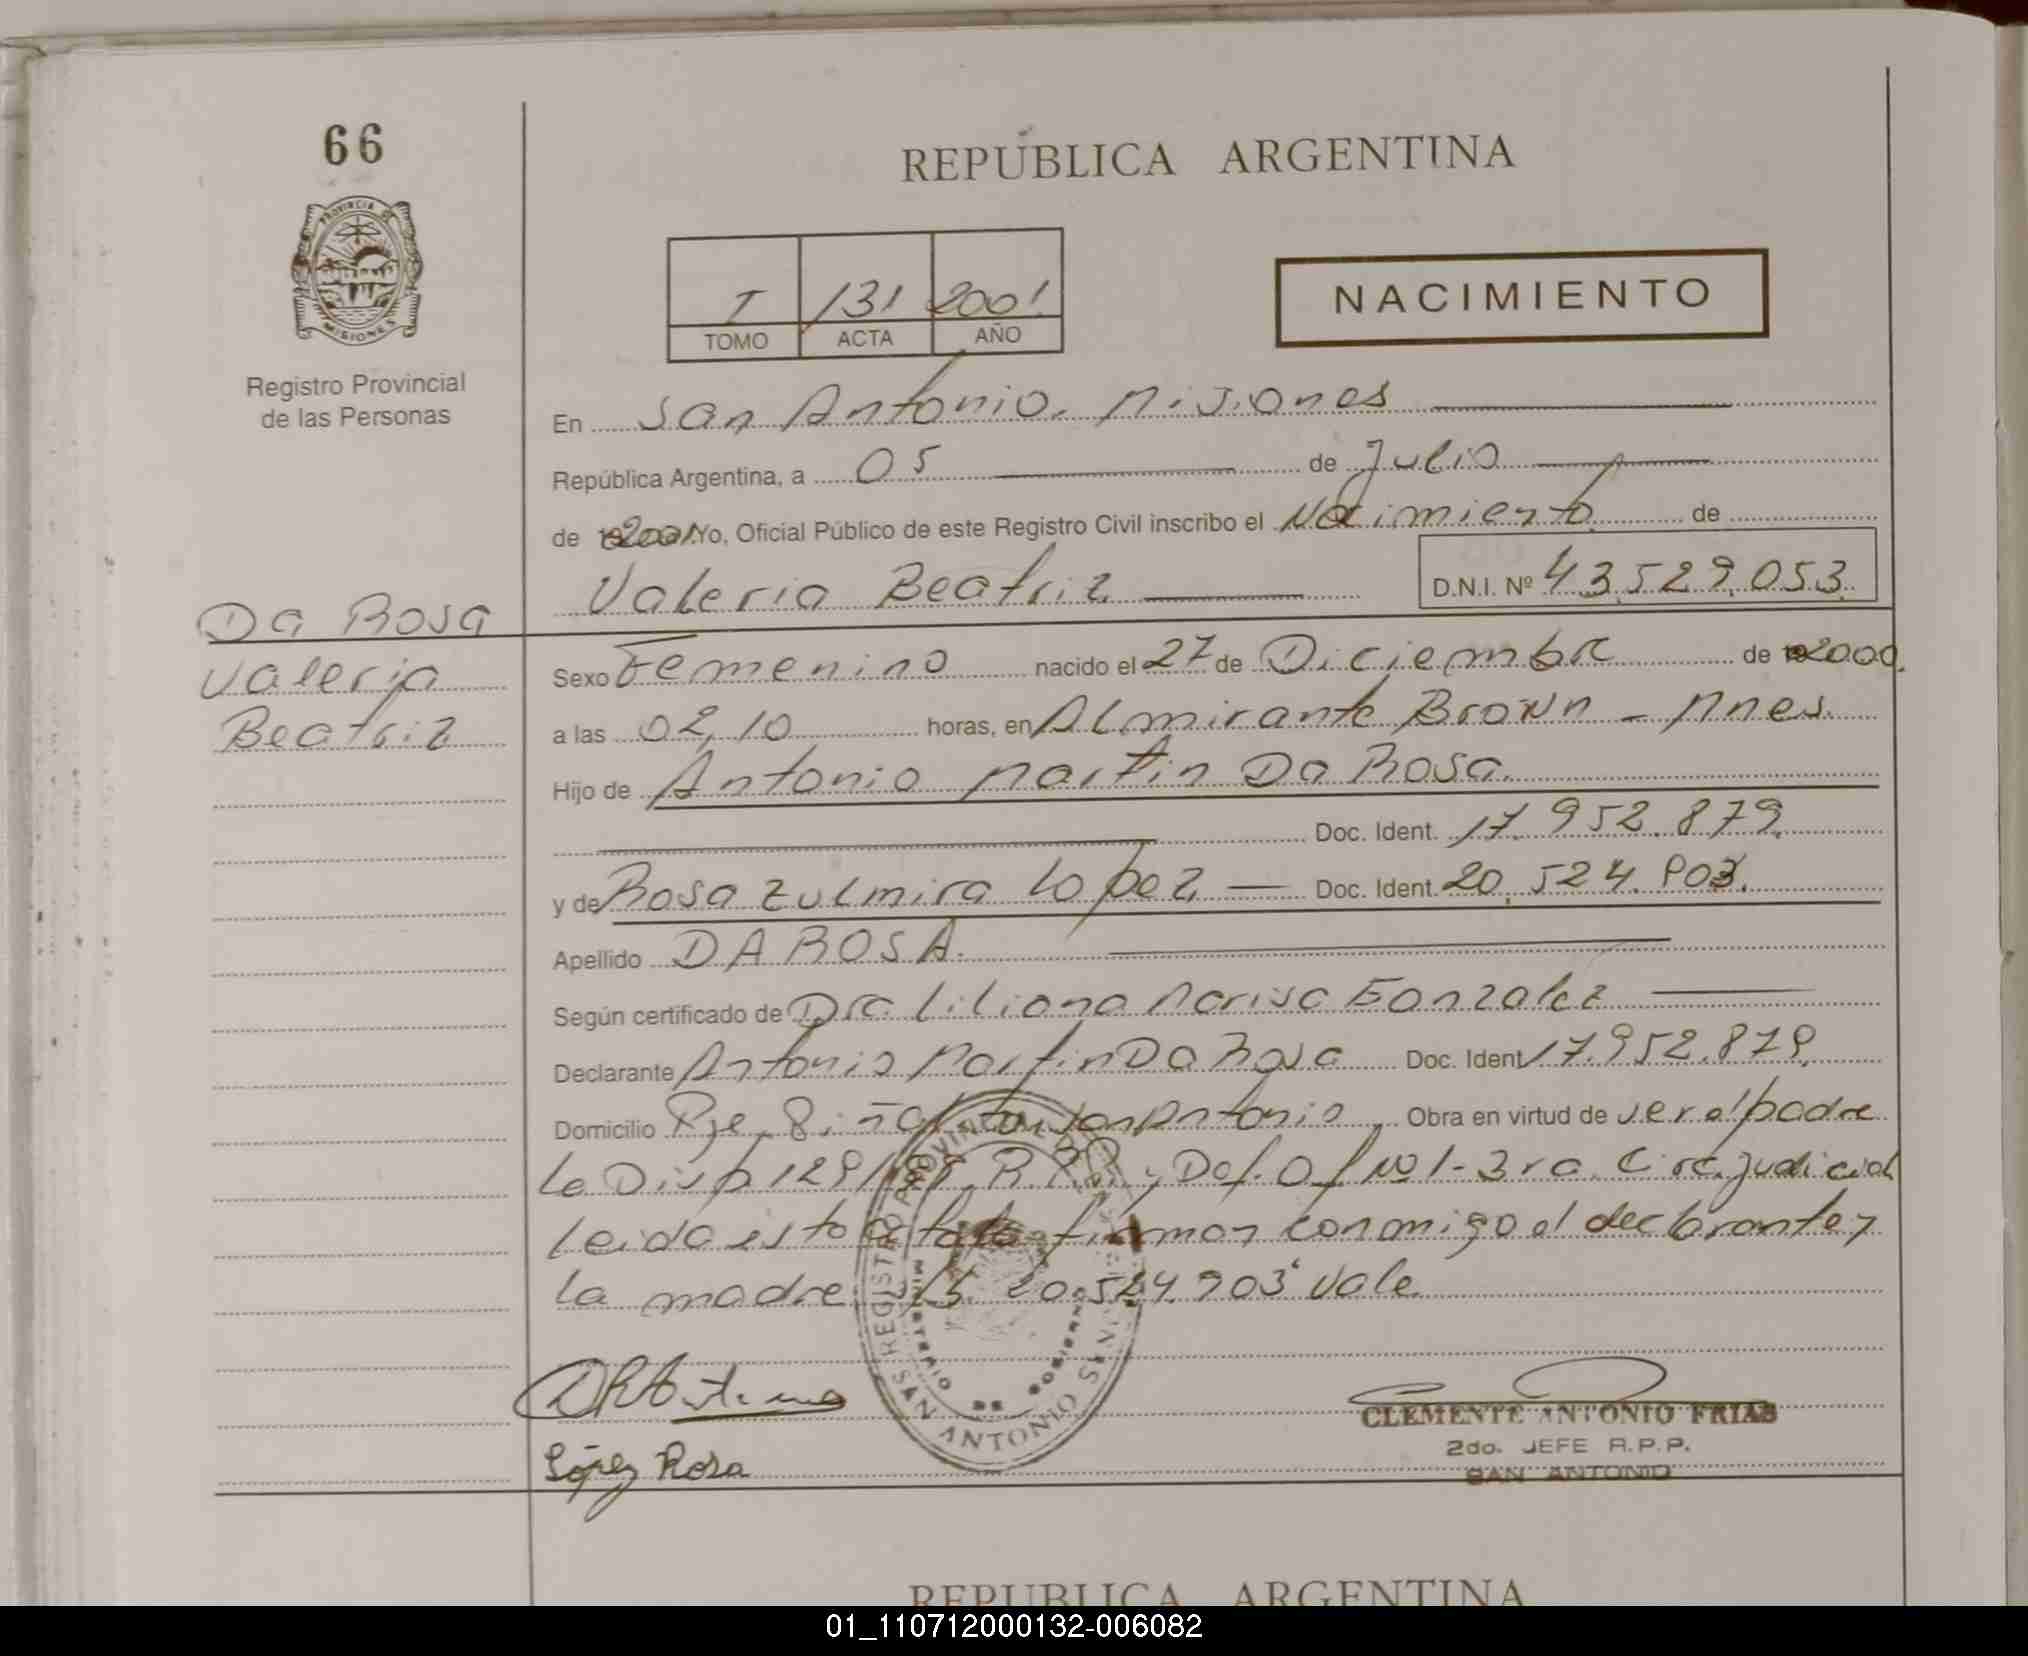 66
REPÚBLICA ARGENTINA
PROVINCIA DE
MISIONES
I 131 2001
TOMO ACTA AÑO
NACIMIENTO
Registro Provincial
de las Personas
En San Antonio. Misiones
República Argentina, a 05 de Julio
de 2001 Yo, Oficial Público de este Registro Civil inscribo el Nacimiento de
Valeria Beatriz D.N.I. Nº 43.529.053
Da Rosa
Valeria
Beatriz
Sexo Femenino nacido el 27 de Diciembre de 2000.
a las 02,10 horas, en Almirante Brown - Mnes.
Hijo de Antonio Martin Da Rosa.
Doc. Ident. 17.952.879.
y de Rosa Zulmira Lopez Doc. Ident. 20.524.903.
Apellido DA ROSA.
Según certificado de Dra. Liliana Marisa Gonzalez
Declarante Antonio Martin Da Rosa Doc. Ident 17.952.879.
Domicilio San Antonio Obra en virtud de ser el padre
Le Disp 129/ R.P.P. y Def. Of Nº 1 - 3ra. Circ. Judicial
Leida esta acta firman conmigo el declarante y
la madre 20.524.903 Vale.
REGISTRO PROVINCIAL DE LAS PERSONAS
MINISTERIO DE GOBIERNO
SAN ANTONIO
López Rosa
CLEMENTE ANTONIO FRIAS
2do. JEFE R.P.P.
SAN ANTONIO
REPUBLICA ARGENTINA
01_110712000132-006082